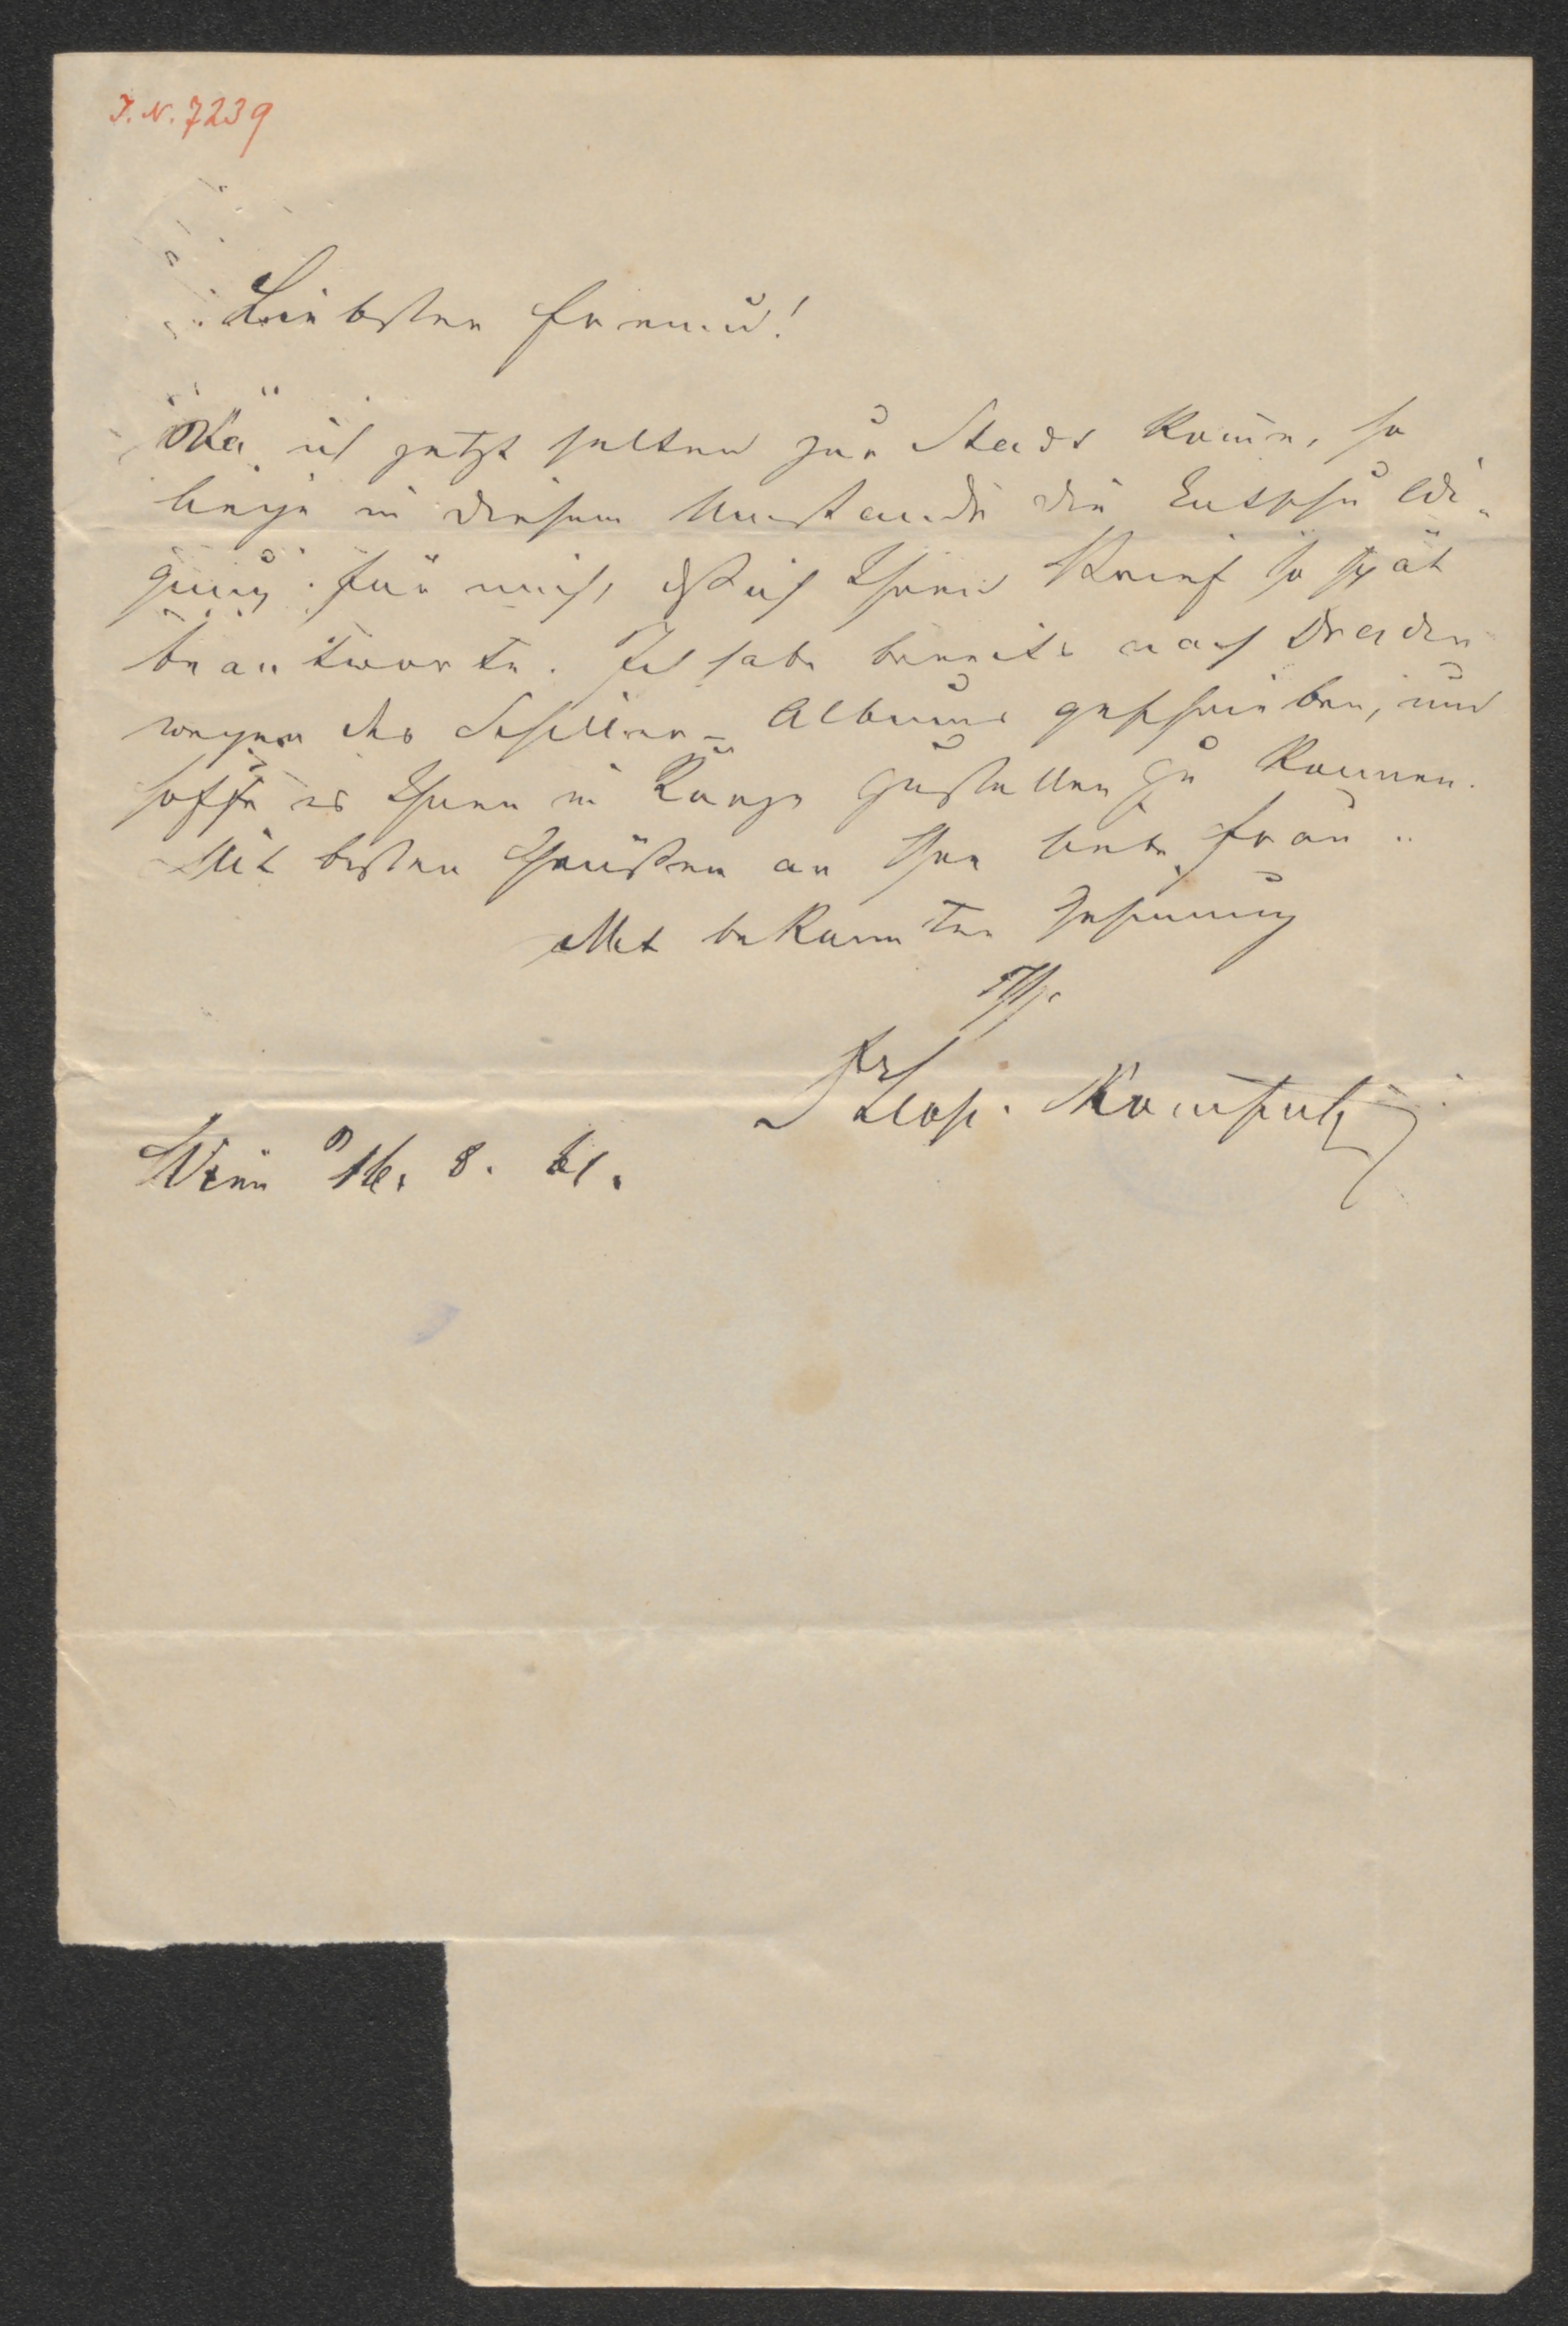 I. N. 7239
Liebster Freund!
Da ich jetzt selten zur Stadt komme, so
liege in diesem Umstande die Entschuldi-
gung für mich, daß ich Ihren Brief so spät
beantworte. Ich habe bereits nach Dresden
wegen des Schiller-Albums geschrieben, und
hoffe es Ihnen in Kürze zustellen zu können.
Mit besten Grüßen an Ihre liebe Frau
Mit bekannter Gesinnung
Ihr
Leop. Kompert
Wien 16. 8. 61.